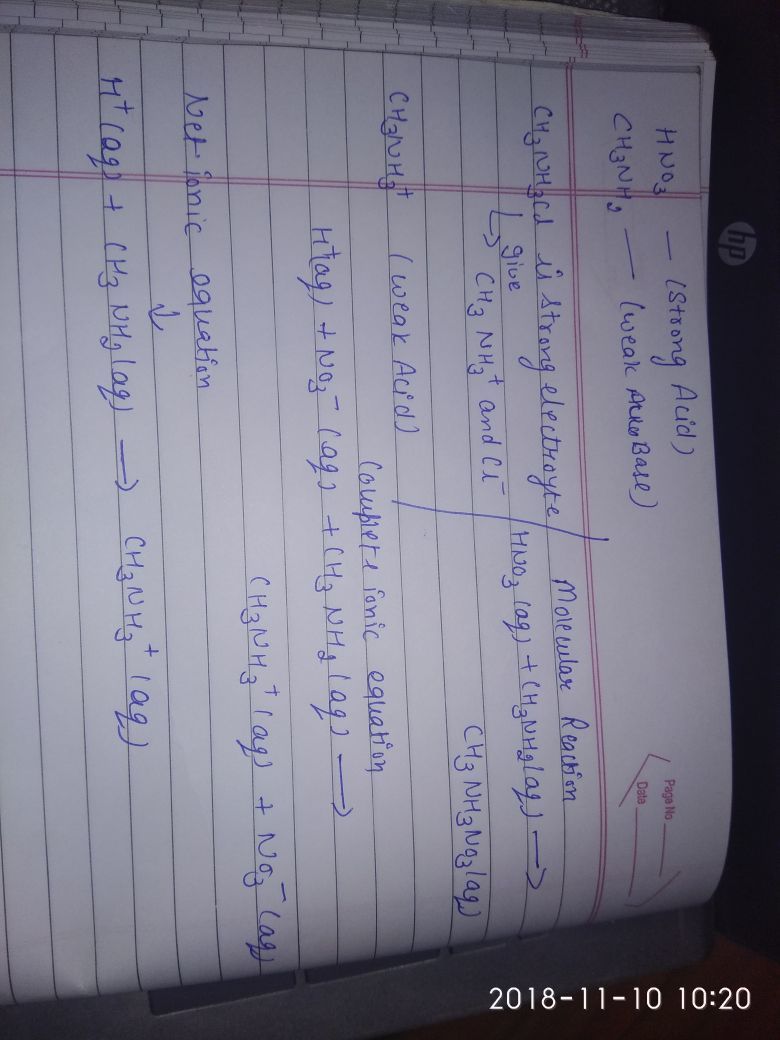 Page No
Date
HNO3 — (Strong Acid)
CH3NH2 — (weak Base)
CH3NH3Cl is strong electrolyte
↳ give CH3NH3+ and Cl-
CH3NH3+ (weak Acid)
Molecular Reaction
HNO3(aq) + CH3NH2(aq) →
CH3NH3NO3(aq)
Complete ionic equation
H+(aq) + NO3-(aq) + CH3NH2(aq) →
CH3NH3+(aq) + NO3-(aq)
Net ionic equation
↓
H+(aq) + CH3NH2(aq) → CH3NH3+(aq)
hp
2018-11-10 10:20